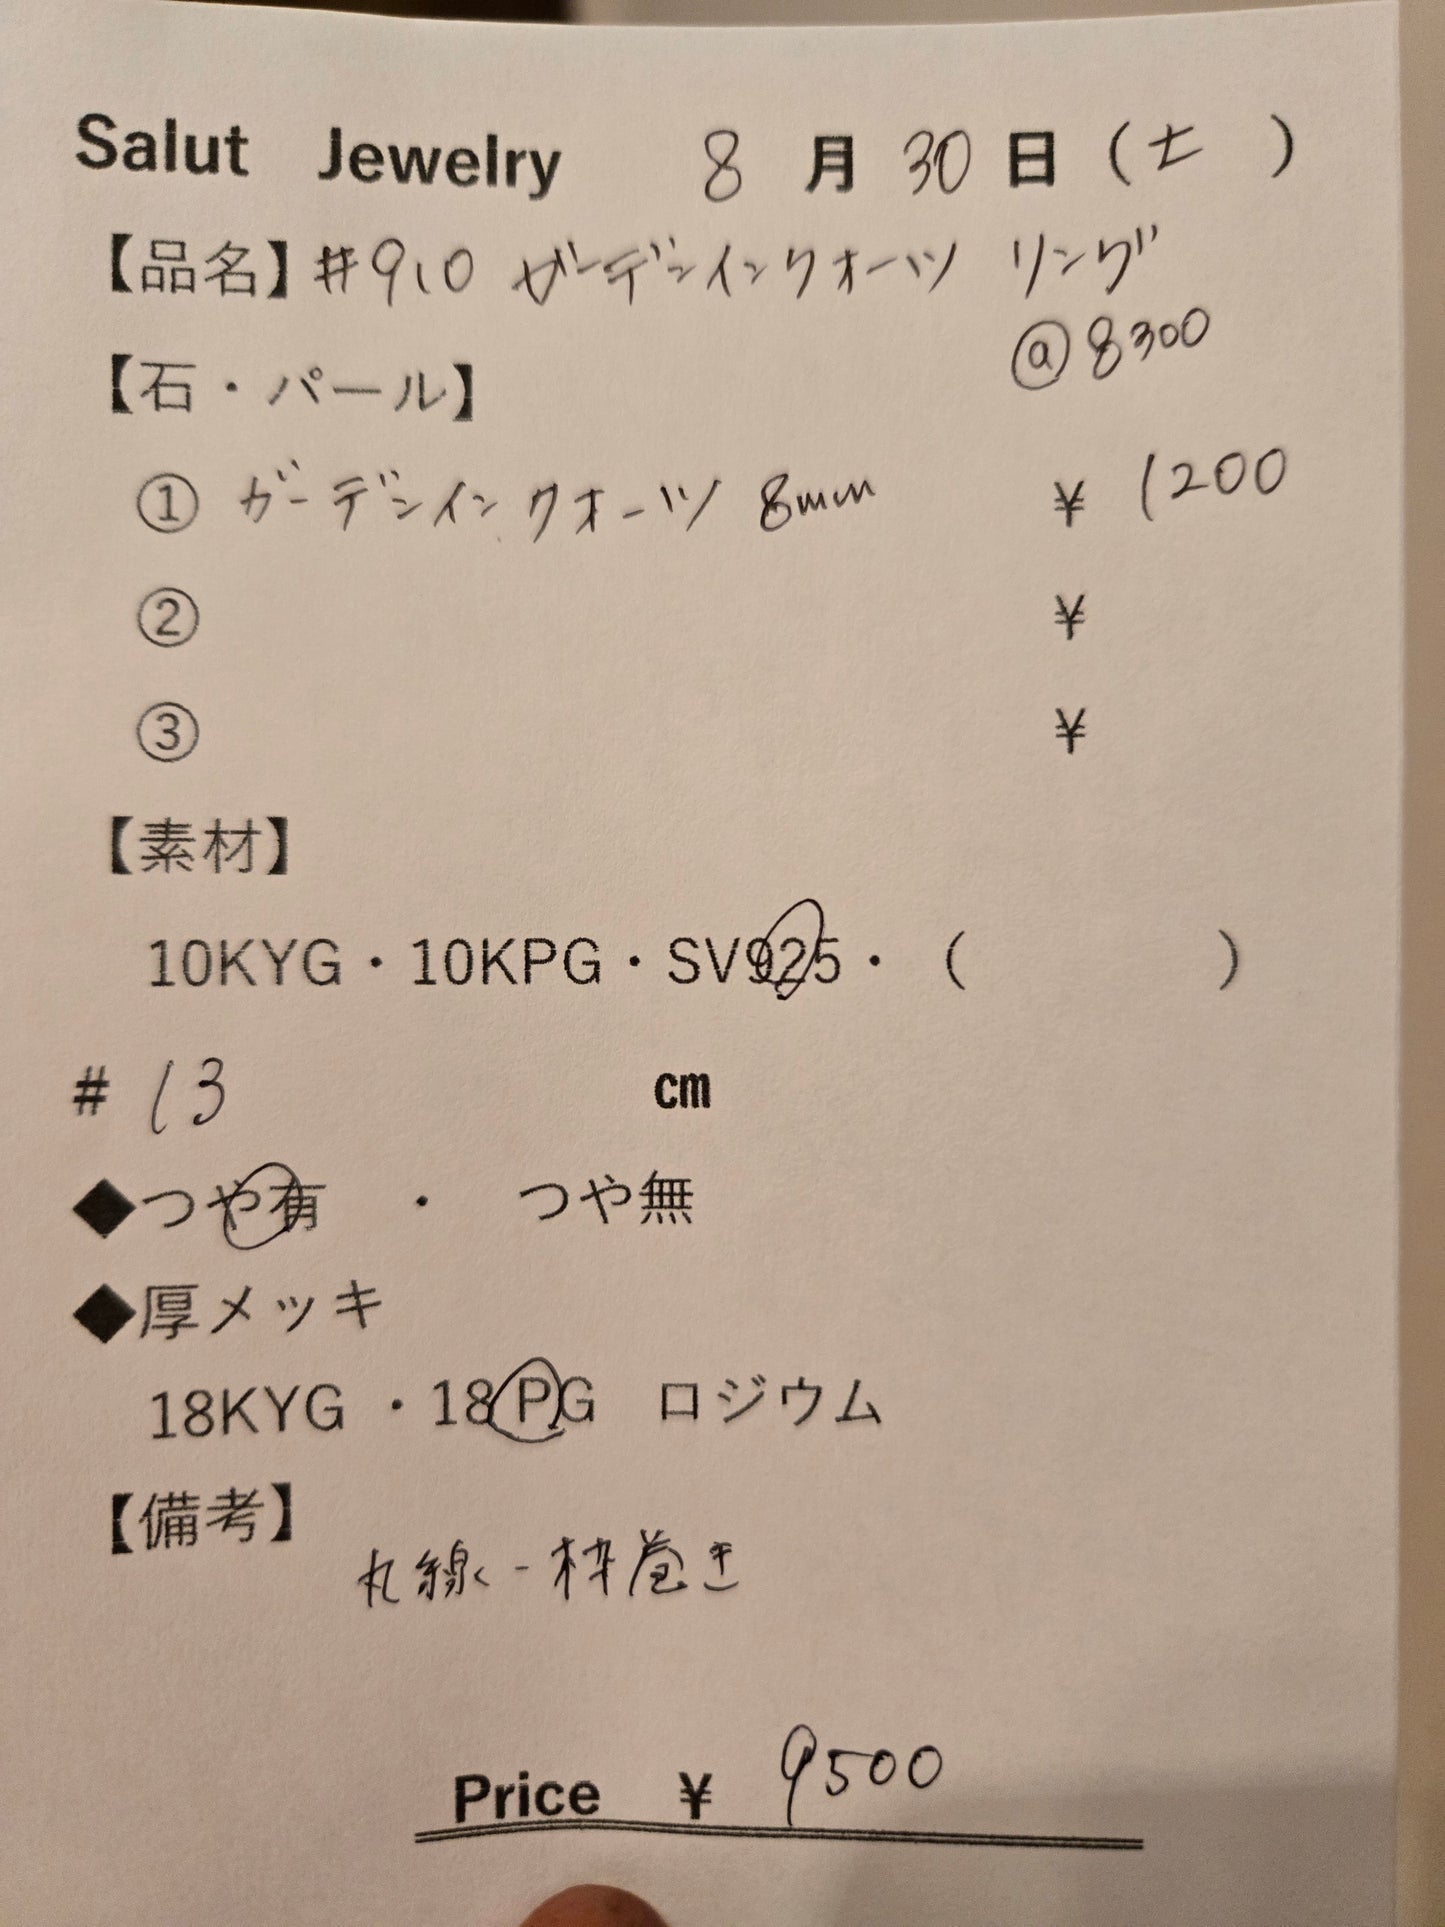 Salut Jewelry 8月30日(土)
【品名】#910 ガーデンインクオーツ リング
@8300
【石・パール】
① ガーデンインクオーツ 8mm ¥1200
② ¥
③ ¥
【素材】
10KYG・10KPG・SV925・( )
# 13 cm
◆つや有 ・ つや無
◆厚メッキ
18KYG ・18PG ロジウム
【備考】
丸線-枠巻き
Price ¥ 9500